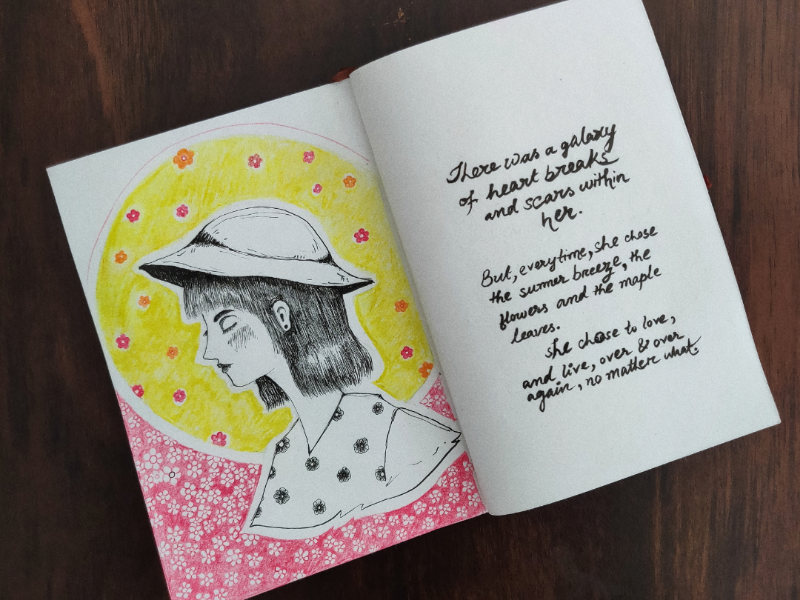 There was a galaxy
of heart breaks
and scars within
her.
But, everytime, she chose
the sumer breeze, the
flowers and the maple
leaves.
She chose to love,
and live, over & over
again, no matter what.